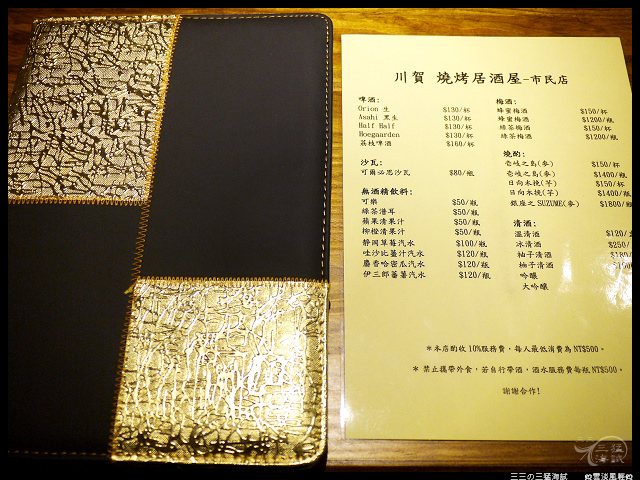 川賀 燒烤居酒屋-市民店
啤酒:
Orion 生 $130/杯
Asahi 黑生 $130/杯
Half Half $130/杯
Hoegaarden $130/杯
荔枝啤酒 $160/杯
沙瓦:
可爾必思沙瓦 $80/瓶
無酒精飲料:
可樂 $50/瓶
綠茶 $50/瓶
蘋果清果汁 $50/瓶
柳橙清果汁 $50/瓶
靜岡草莓汽水 $100/瓶
哇沙比薑汁汽水 $120/瓶
麝香哈密瓜汽水 $120/瓶
伊三郎蕃薯汽水 $120/瓶
梅酒:
蜂蜜梅酒 $150/杯
蜂蜜梅酒 $1200/瓶
綠茶梅酒 $150/杯
綠茶梅酒 $1200/瓶
燒酌:
壱岐之島(麥) $150/杯
壱岐之島(麥) $1400/瓶
日向木挽(芋) $150/杯
日向木挽(芋) $1400/瓶
銀座之 SUZUME(麥) $1800/瓶
清酒:
溫清酒 $120/
冰清酒 $250/
柚子清酒 $180
柚子清酒 $150
吟釀
大吟釀
*本店酌收 10%服務費，每人最低消費為 NT$500。
* 禁止攜帶外食，若自行帶酒，酒水服務費每瓶 NT$500。
謝謝合作!
三三の三猛海試 雲淡風輕